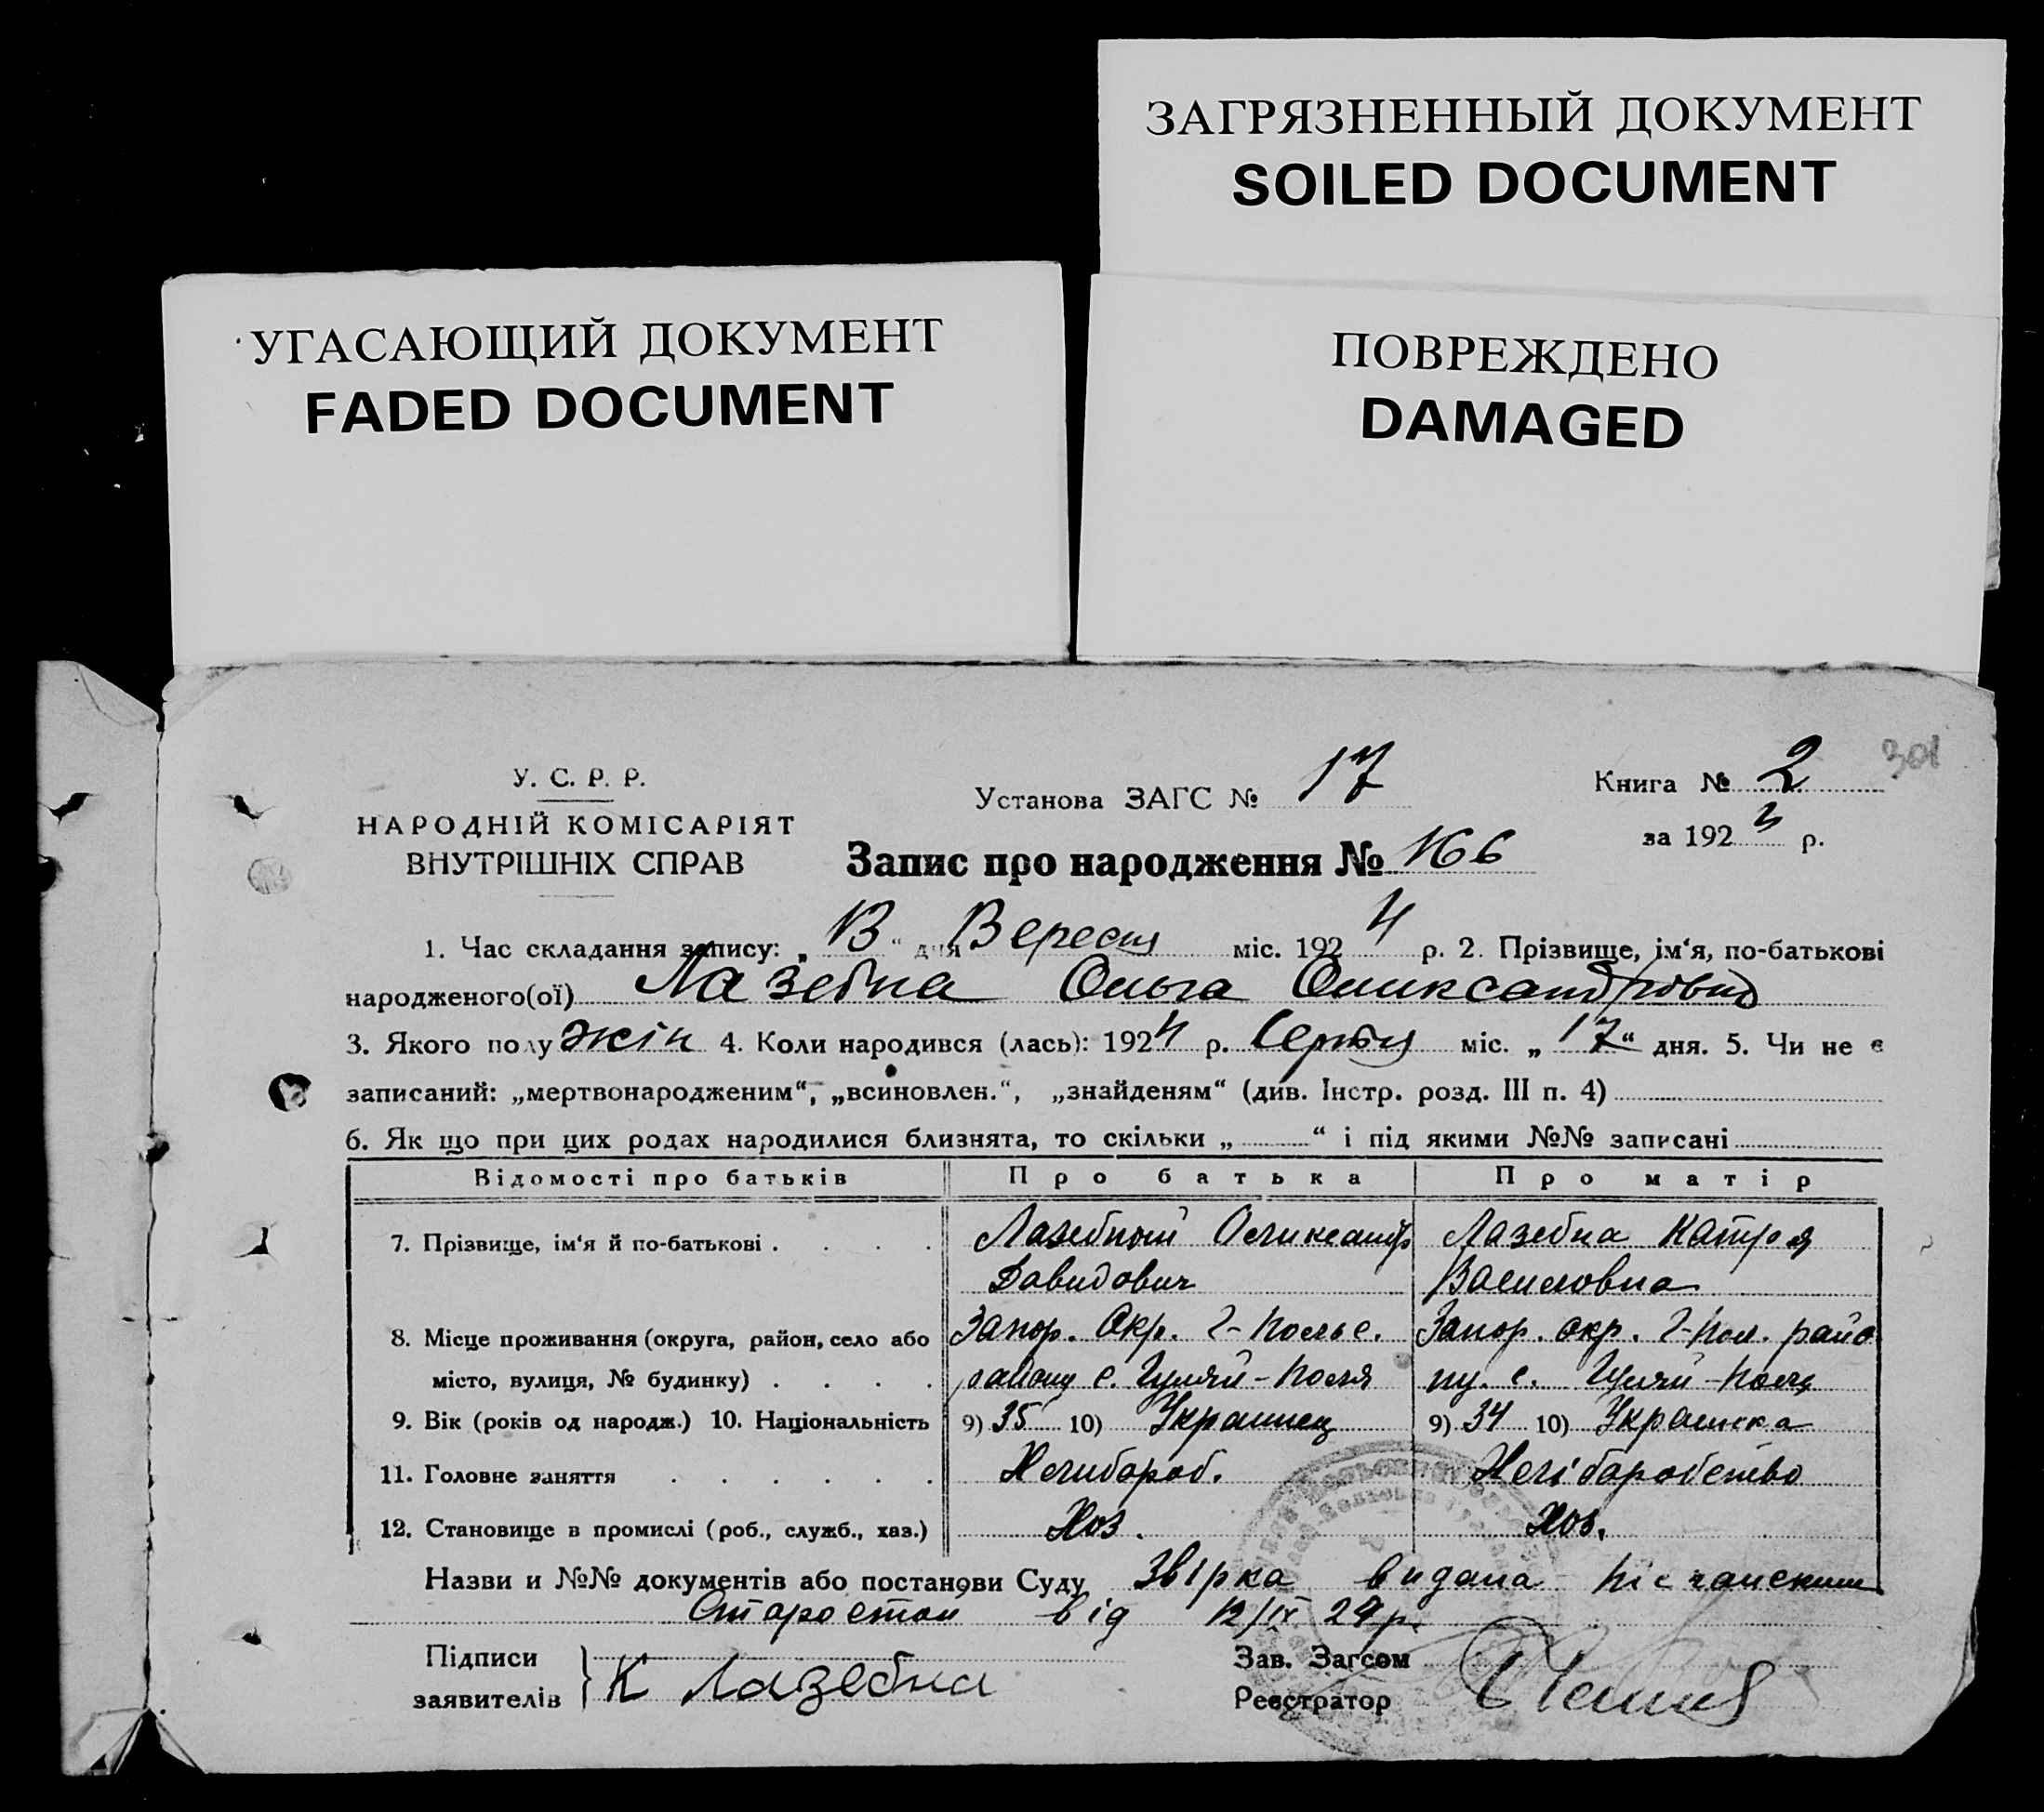 ЗАГРЯЗНЕННЫЙ ДОКУМЕНТ
SOILED DOCUMENT
УГАСАЮЩИЙ ДОКУМЕНТ
FADED DOCUMENT
ПОВРЕЖДЕНО
DAMAGED
301
У. С. Р. Р.
НАРОДНІЙ КОМІСАРІЯТ
ВНУТРІШНІХ СПРАВ
Установа ЗАГС № 17
Книга № 2
за 1923 р.
Запис про народження № 166
1. Час складання запису: „13“ дня Вересня міс. 1924 р. 2. Прізвище, ім‘я, по-батькові
народженого(ої) Лазебна Ольга
3. Якого полу жін 4. Коли народився (лась): 1924 р. Серпня міс. „17“ дня. 5. Чи не є
записаний: „мертвонародженим“, „всиновлен.“, „знайденям“ (див. Інстр. розд. III п. 4)
6. Як що при цих родах народилися близнята, то скільки „ “ і під якими №№ записані
Відомості про батьків Про батька Про матір
7. Прізвище, ім‘я й по-батькові . . . . Лазебный Олександр Лазебна Катря
Давидович Василовна
8. Місце проживання (округа, район, село або Запор. Окр. Г-Польс. Запор. окр. Г-Пол. райо
місто, вулиця, № будинку) . . . . району с. Гуляй-Поля ну. с. Гуляй-Поля
9. Вік (років од народж.) 10. Національність 9) 35 10) Украинец 9) 34 10) Украинка
11. Головне заняття . . . . . . Хлибороб. Хліборобство
12. Становище в промислі (роб., служб., хаз.) Хоз. Хоз.
Назви и №№ документів або постанови Суду Звірка видана
Старостой від 12/IX 24 р.
Підписи
заявителів } К Лазебна
Зав. Загсом
Реєстратор